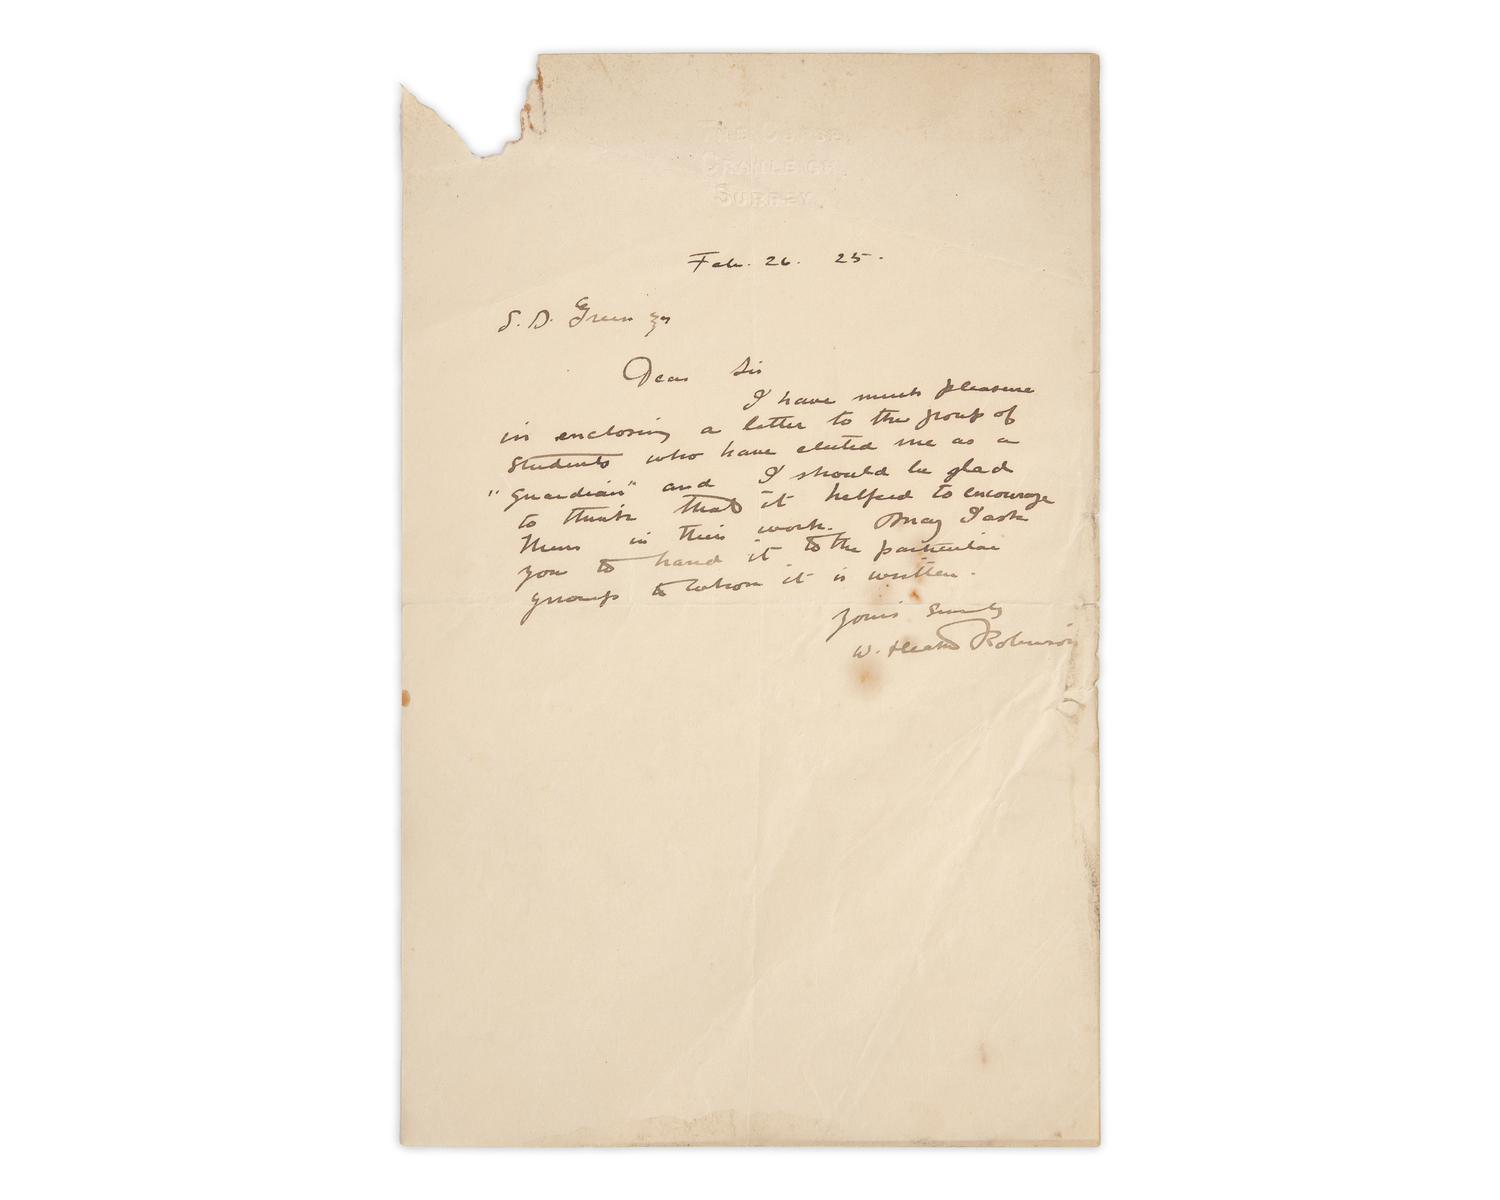 THE COPSE,
CRANLEIGH,
SURREY.
Feb. 26. 25.
S. D. Green Esq
Dear Sir
I have much pleasure
in enclosing a letter to the group of
students who have elected me as a
"Guardian" and I should be glad
to think that it helped to encourage
them in their work. May I ask
you to hand it to the particular
group to whom it is written.
Yours Sincerely
W. Heath Robinson